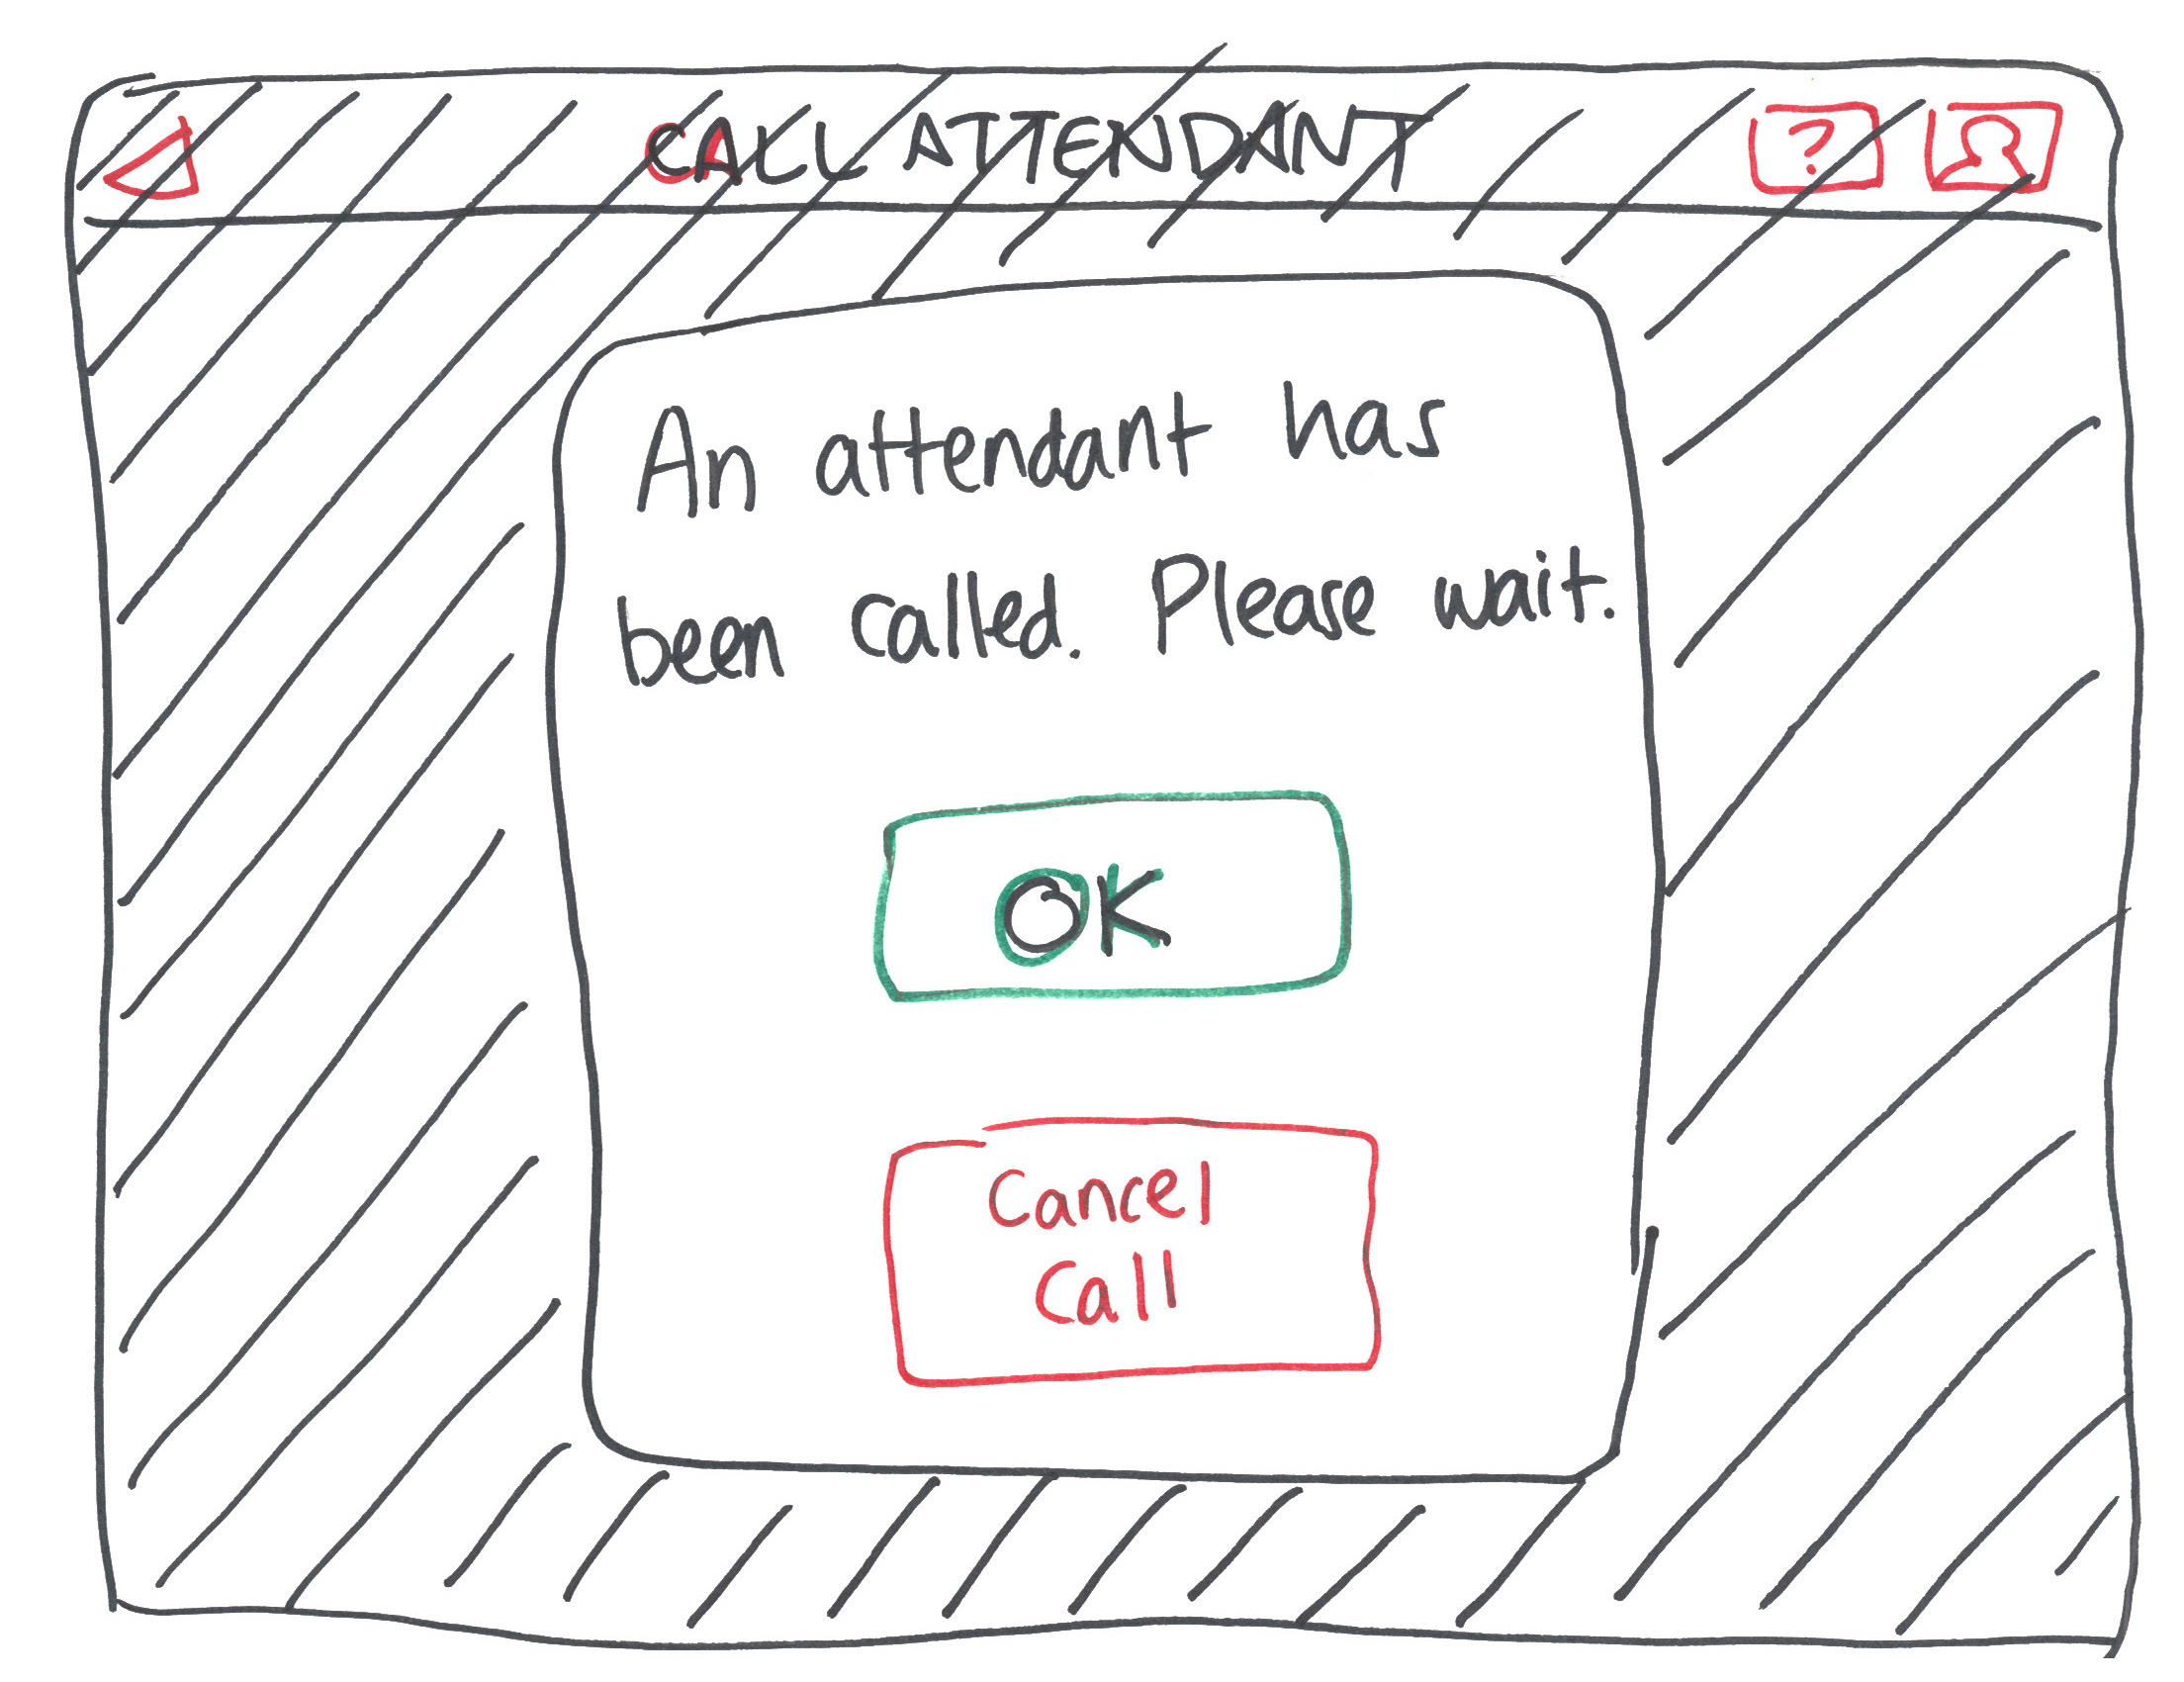 CALL ATTENDANT ?
An attendant has
been called. Please wait.
OK
Cancel
Call